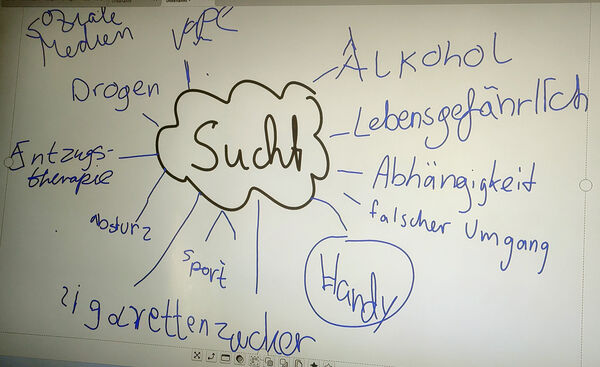 Soziale
Medien
VAPE
Alkohol
Drogen
Lebensgefährlich
Sucht
Entzugs-
therapie
Abhängigkeit
falscher Umgang
absturz
sport
Handy
zigaretten
zucker